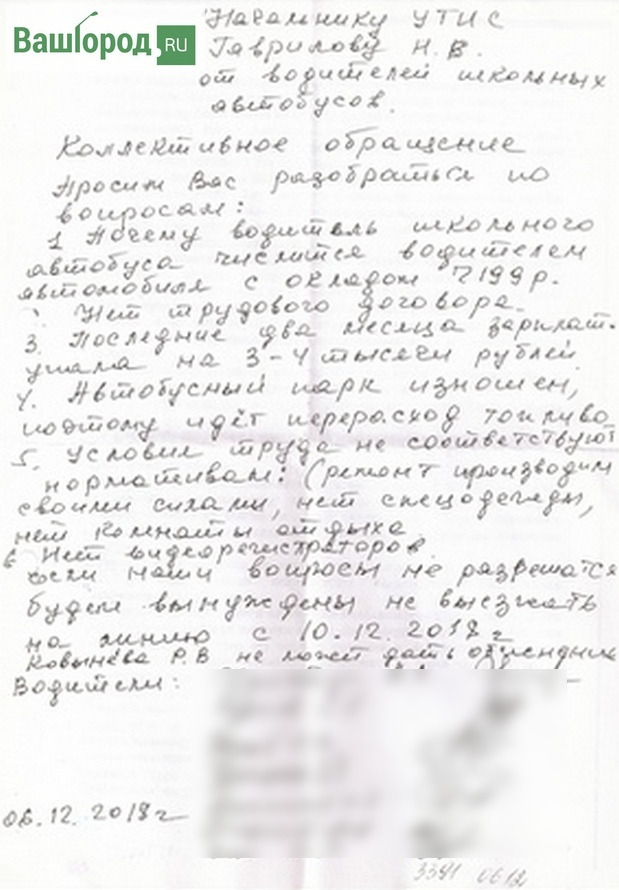 ВашГород.RU
Начальнику УТИС
Гаврилову Н.В.
от водителей школьных
автобусов.
Коллективное обращение
Просим Вас разобраться по
вопросам:
1 Почему водитель школьного
автобуса числится водителем
автомобиля с окладом 7199 р.
Нет трудового договора.
3. Последние два месяца зарплат.
упала на 3-4 тысячи рублей
4. Автобусный парк изношен,
поэтому идёт перерасход топливо
5. Условия труда не соответствуют
нормативам: (ремонт производим
своими силами, нет спецодежды,
нет комнаты отдыха
6 Нет видеорегистраторов
если наши вопросы не разрешатся
будем вынуждены не выезжать
на линию с 10.12.2018 г
Ковынёва Р.В не может дать
Водители:
06.12.2018 г
3391 06.12